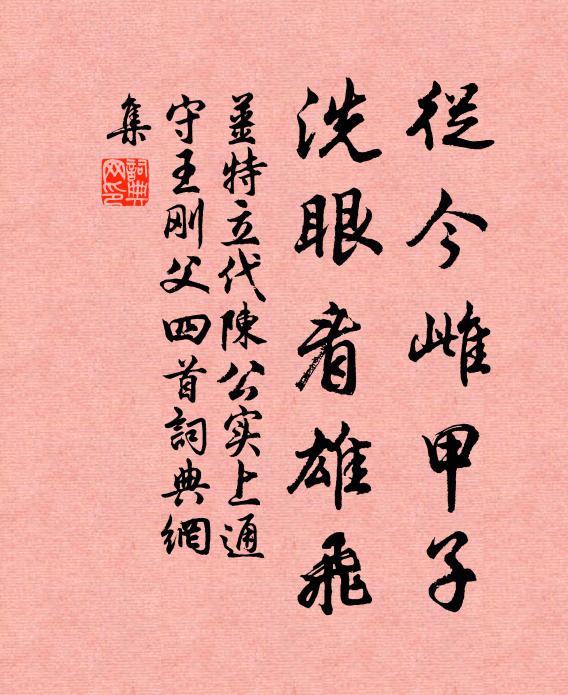 從今雌甲子
洗眼看雄飛
姜特立代陳公实上通
守王刚父四首詞典網
集
詞典網印